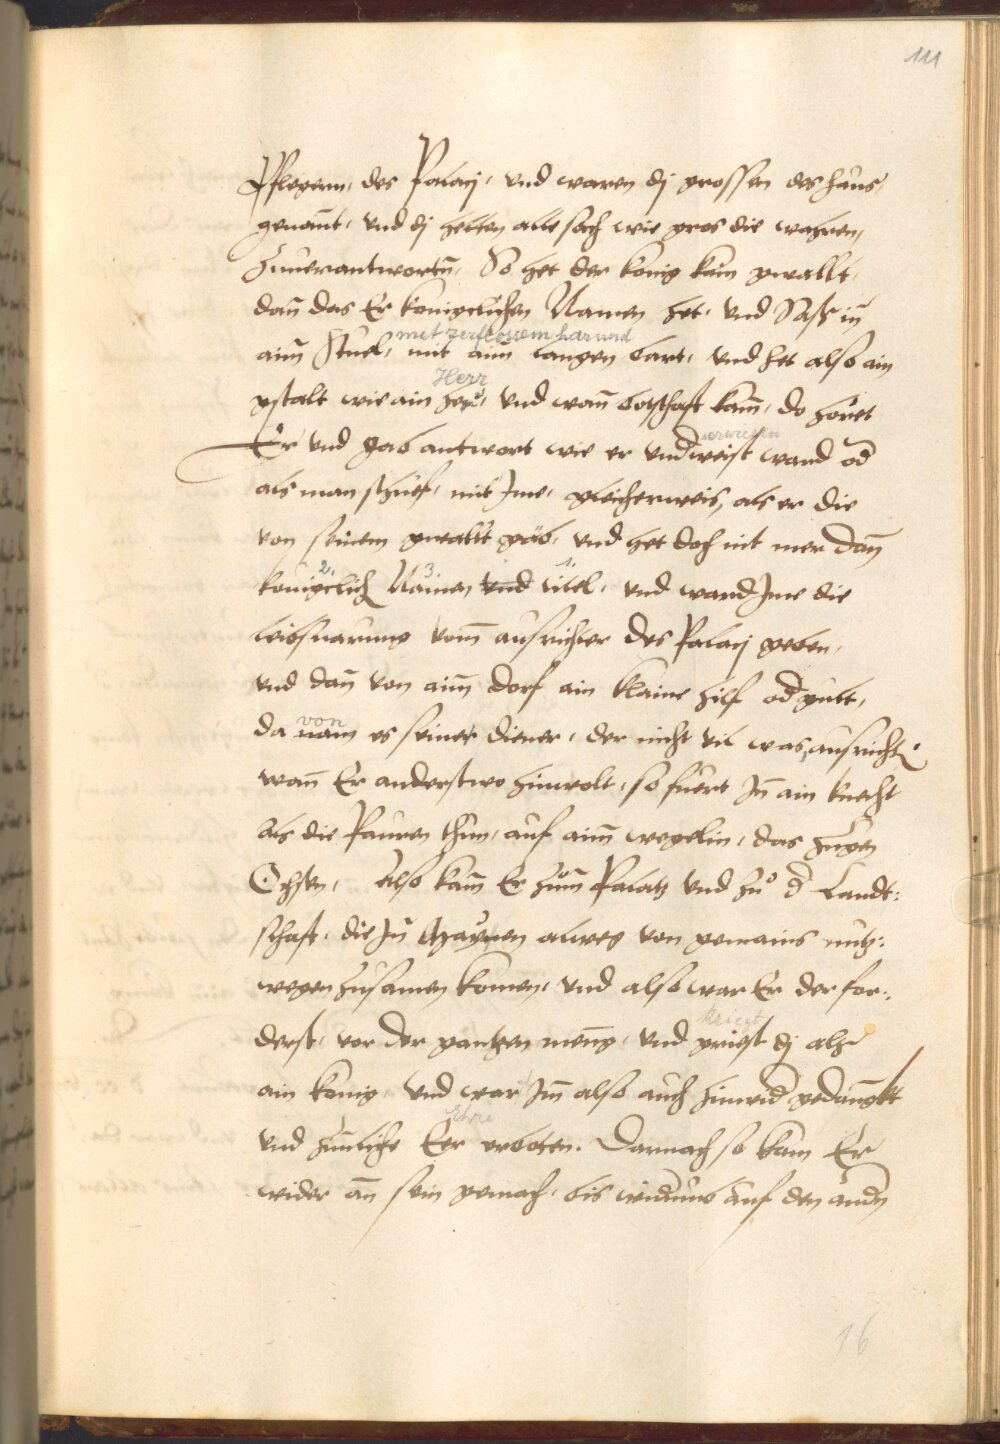 111
Pflegern, des Palacj, vnd waren dj grossen des haus,
genant, vnd dj hetten alle sach wie gros die wahren,
Zuuerantwortn̄, So het der konig kain gwallt,
dan̄ das Er konigclichen Namen het, vnd Saß in̄
met zerflossem har und
aim̄ Stuel, mit aim̄ langen bart, vnd het also ain
Herr
gstalt wie ain herr, vnd wan̄ botschaft kam̄, do höret
Er vnd gab antwort wie er vnderweist ward od
als man schuef, mit Jme, gleicherweis, als er die
von seinem gwallt gäb, vnd het doch nit mer dan̄
2. 3 1.
konigclich Namen vnd titel, vnd ward Jme die
leibsnarung vom̄ ausrichter des Palacj geben,
vnd dan̄ von aim̄ dorf ain klaine hilf od gült,
von
da nam es seiner diener, der nicht vil was, ausricht
wan̄ Er anderstwo hinwolt, so fuert Jn̄ ain knecht
als die Pauren thun, auf aim̄ wegelin, das zugen
Ochsen, Also kam̄ Er zum̄ Palatz vnd zu d Landt:
schaft, die Jn̄ Mayen alweg von gemains nutz:
wegen zusamen komen, vnd also war Er der for:
derst, vor der gantzen meng, vnd griest dj alß
ain konig, vnd war Jm̄ also auch hinwid gedanngkt
Ehre
vnd zimliche Eer erboten. Darnach so kam Er
wider an̄ sein gemach, bis widumb auf den andn
16